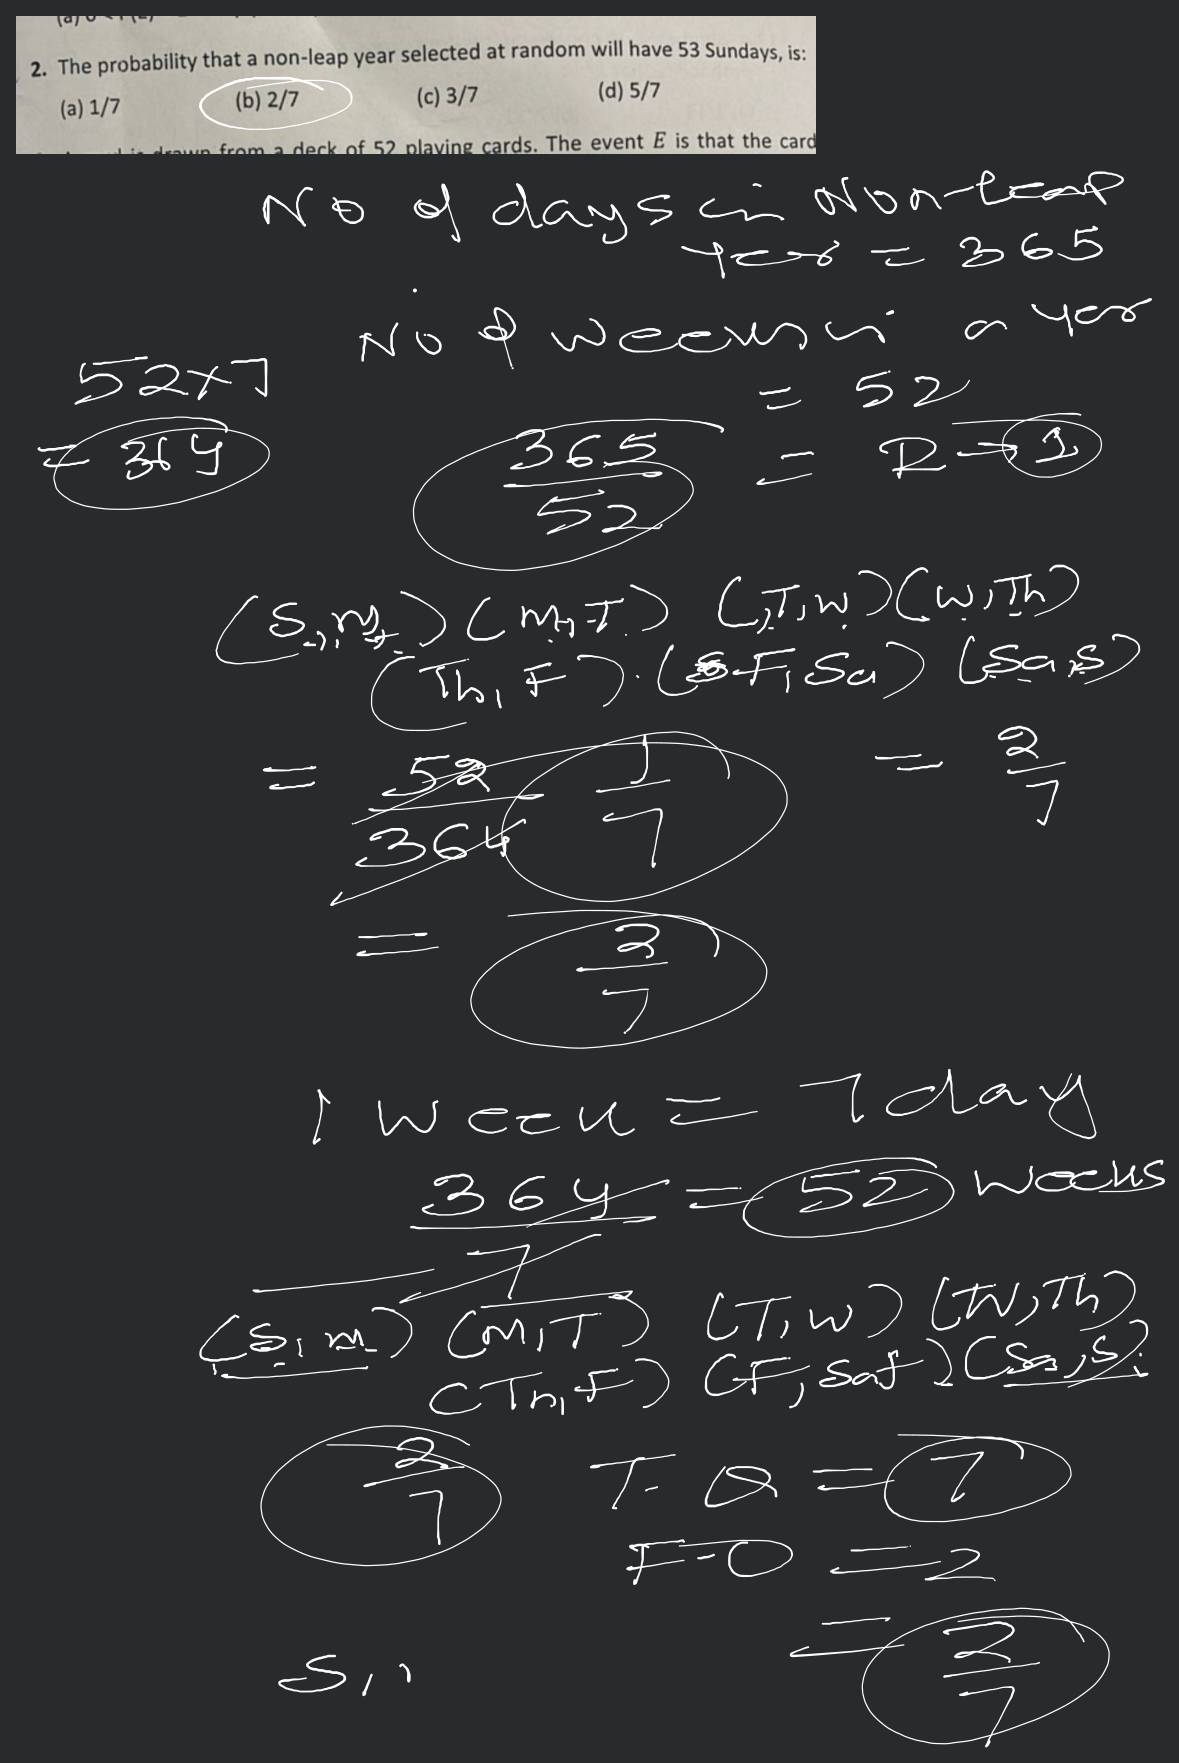 2. The probability that a non-leap year selected at random will have 53 Sundays, is:
(a) 1/7 (b) 2/7 (c) 3/7 (d) 5/7
drawn from a deck of 52 playing cards. The event E is that the card
No of days in Non-leap
Year = 365
No of weeks in a year
52×7 = 52
= 364 365/52 = R→1
(S, M) (M, T) (T, W) (W, Th)
(Th, F). (F, Sa) (Sa, S)
= 52/364 1/7 = 2/7
= 2/7
1 Week = 7 day
364/7 = 52 weeks
(S, M) (M, T) (T, W) (W, Th)
(Th, F) (F, Sat) (Sa, S)
2/7 T-O = 7
F-O = 2
= 2/7
S,